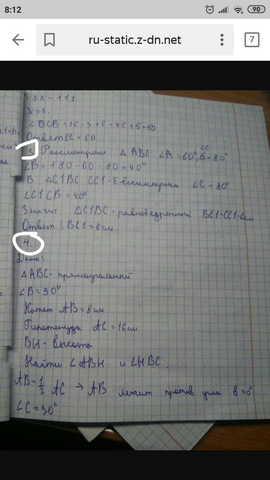 8:12
90
ru-static.z-dn.net
7
∠BCB=15·3+5=45+5=50
Ответ: ∠C=50
Рассмотрим △ABC ∠A=60°, ∠C=80°
∠B=180-60-80=40°
В △C1BC CC1-биссектриса ∠C=80°
∠C1CB=40°
Значит △C1BC-равнобедренный BC1=CC1=8см
Ответ: BC1=8см.
4.
Дано:
△ABC-прямоугольный
∠B=90°
Катет AB=8см
Гипотенуза AC=16см
BH-высота
Найти ∠ABH и ∠HBC.
AB=1/2 AC → AB лежит против угла в 30°
∠C=30°